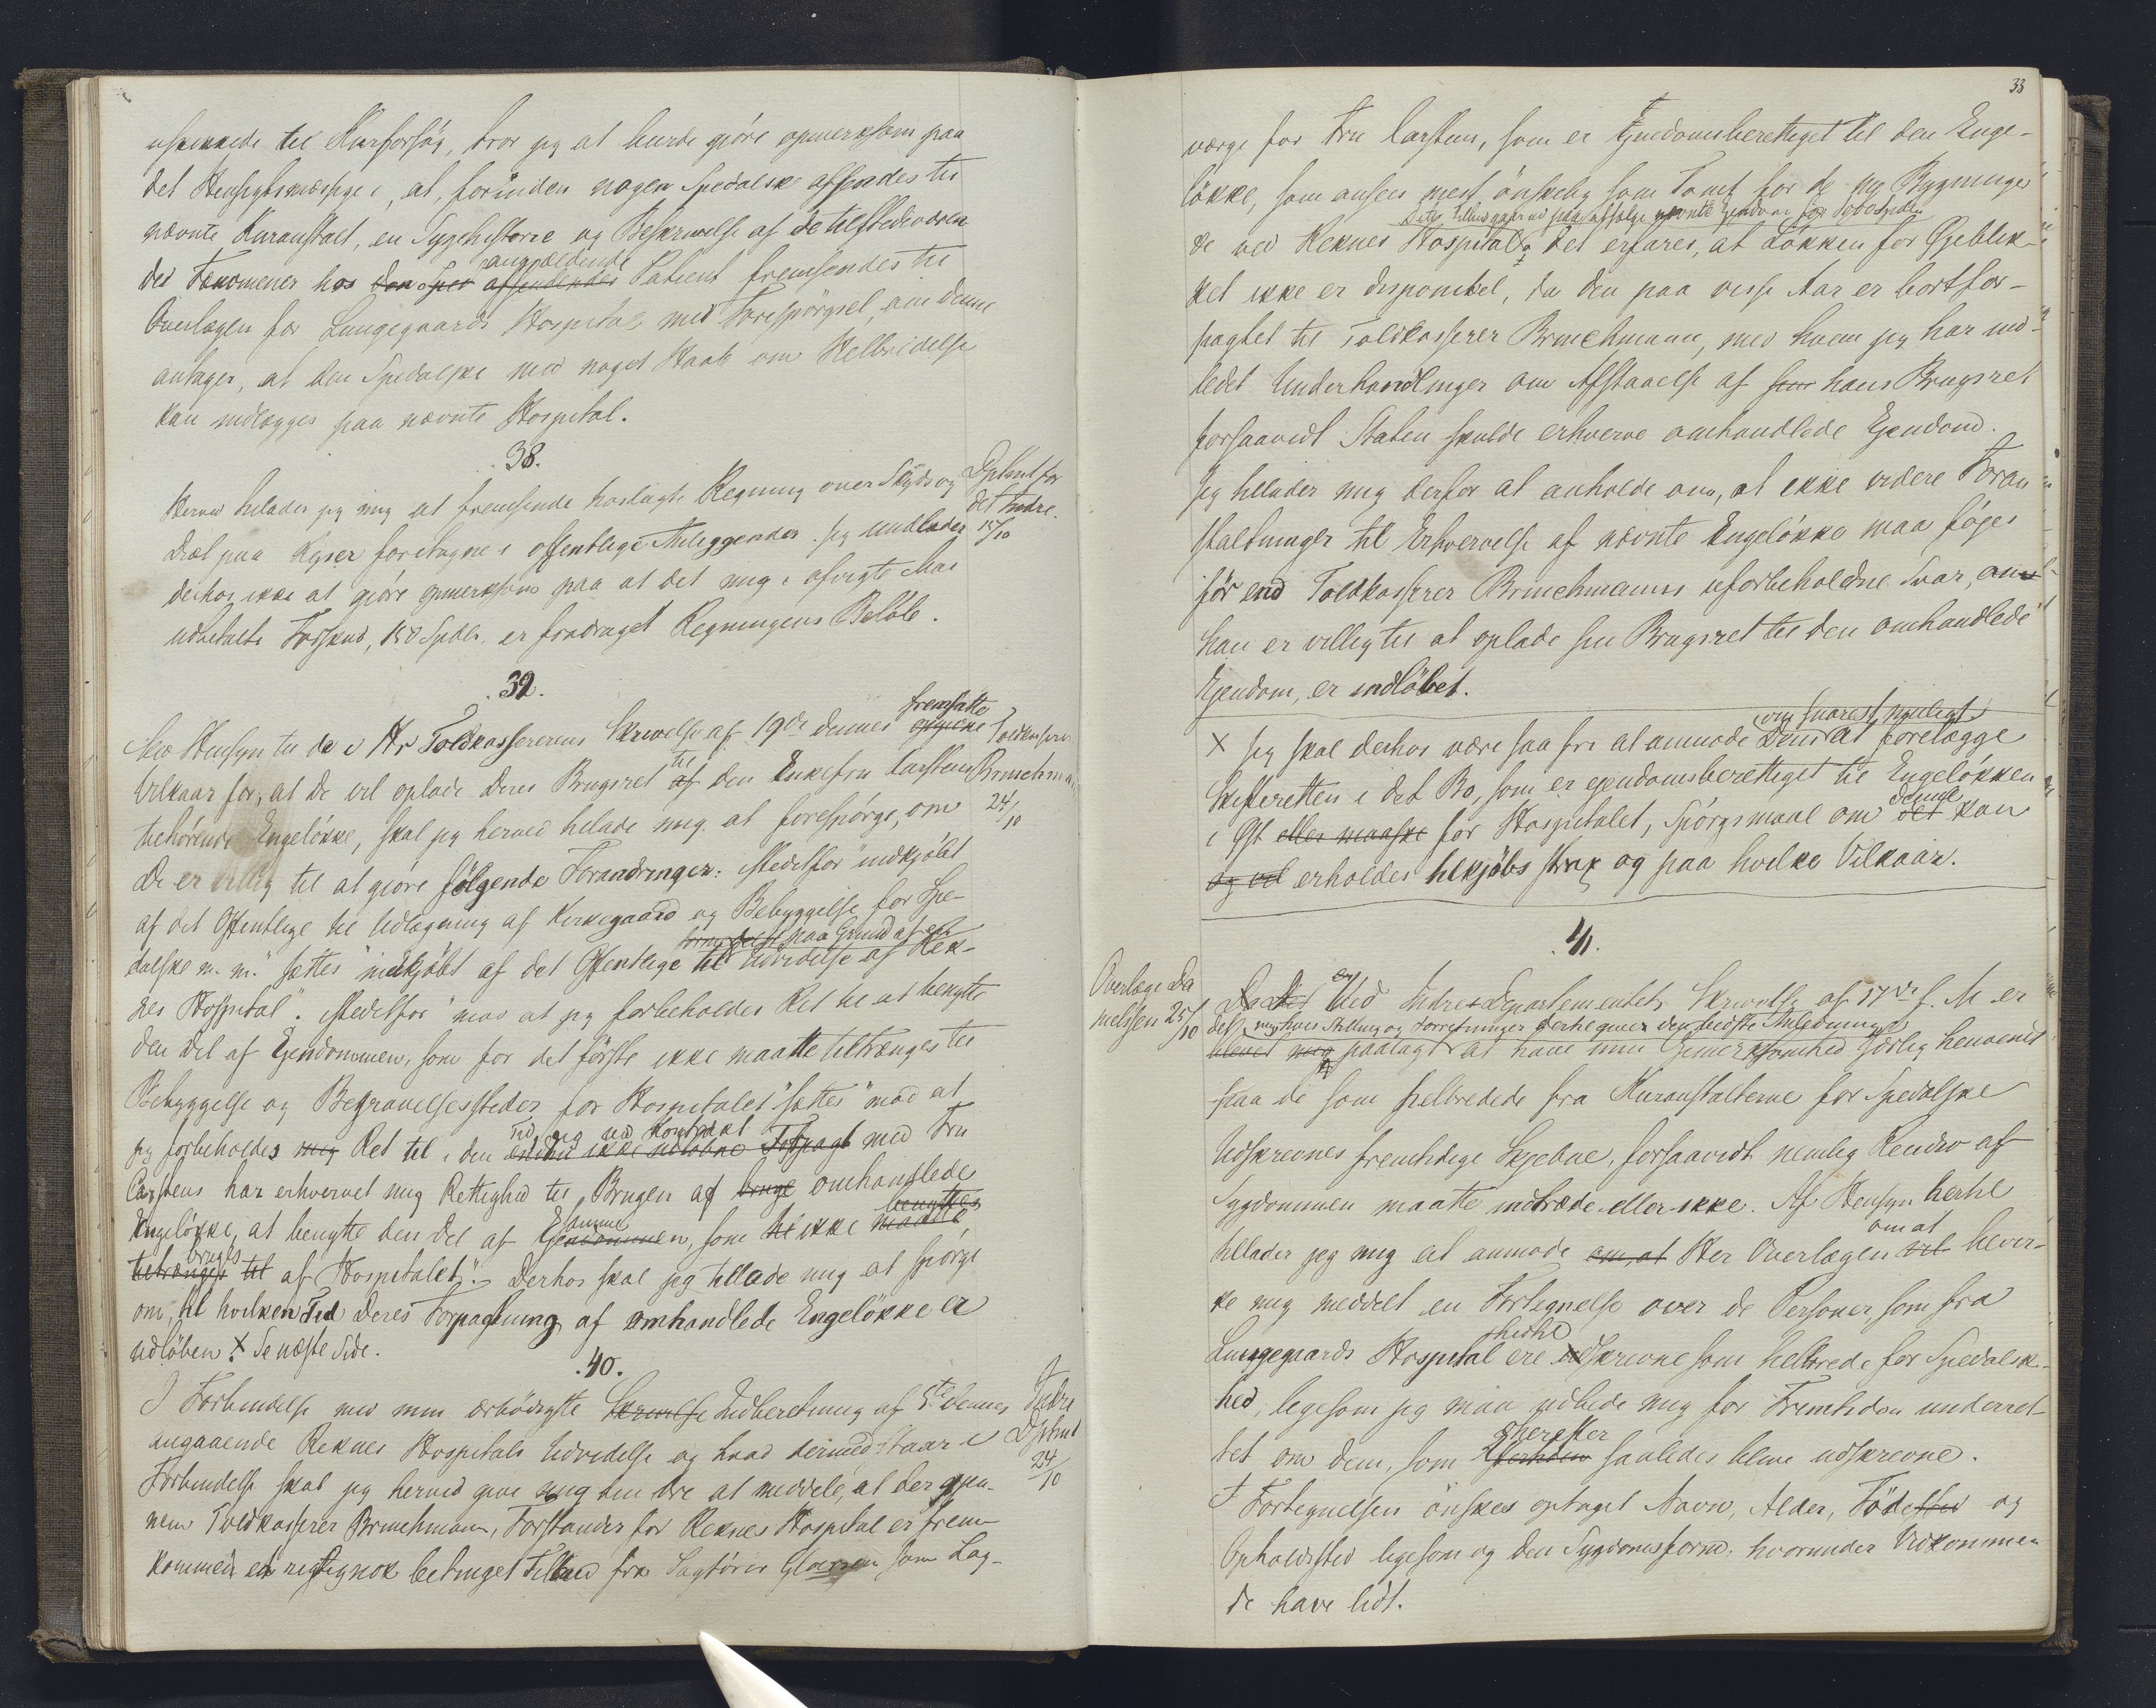 uskikkede til Kurforsøg, tror jeg at burde gjøre opmerksom paa
det Hensigtsmæssige i, at, forinden nogen Spedalsk afsendes til
nævnte Kuranstalt, en Sygehistorie og Beskrivelse af de tilstedeværen
des Fænomener hos den Sped afsendendes angjældende Patient fremsendes til
Overlægen for Lungegaards Hospital med Forespørgsel, om denne
antager, at den Spedalske med noget Haab om Helbredelse
kan indlægges paa nævnte Hospital.
38.
Dptmt for
det Indre.
15/10
Herved tillader jeg mig at fremsende hoslagte Regning over Skyds og
Diæt paa Rejser foretagne i offentlige Anliggender. Jeg undlader
derhos ikke at gjøre opmerksom paa at det mig i afvigte Mai
udbetalte Forskud, 150 Spdlr. er fradraget Regningens Beløb.
39.
Toldkasserer
Brinchmann
24/10
Med Hensyn til de i Hr Toldkassererens Skrivelse af 19de dennes opgivne fremsatte
Vilkaar for, at De vil oplade Deres Brugsret af til den Enkefru Carstens
tilhørende Engeløkke, skal jeg herved tillade mig at forespørge, om
De er villig til at gjøre følgende Forandringer: istedetfor "indkjøbt
af det Offentlige til Udlægning af Kirkegaard og Bebyggelse for Spe-
dalske m. m." sættes "indkjøbt af det Offentlige til paa Grund af en Udvidelse af Rek-
nes Hospital". istedetfor "mod at jeg forbeholdes Ret til at benytte
den Del af Ejendommen, som for det første ikke maatte tiltrænges til
Bebyggelse og Begravelsessteder for Hospitalet" sættes "mod at
jeg forbeholdes mig Ret til i den endnu ikke udløbne Forpagt Tid, jeg ved Kontrakt med Fru
Carstens har erhvervet mig Rettighed til Brugen af bruge omhandlede
Engeløkke, at benytte den Del af Ejendommen samme, som til ikke maatte benyttes
tiltrænges til bruges af Hospitalet". Derhos skal jeg tillade mig at spørge
om, til hvilken Tid Deres Forpagtning af omhandlede Engeløkke er
udløben. X Se næste Side.
40.
Indre
Dptmt
24/10
I Forbindelse med min ærbødigste Skrivelse Indberetning af 5te dennes
angaaende Reknes Hospitals Udvidelse og hvad dermed staar i
Forbindelse skal jeg herved give mig den Ære at meddele, at der gjen-
nem Toldkasserer Brinchmann, Forstander for Reknes Hospital er frem-
kommen et rigtignok betinget Tilbud fra Sagfører som Lag-
33
værge for Fru Carstens, som er Ejendomsberettiget til den Enge-
løkke, som ansees mest ønskelig som Tomt for de nye Bygninge
Dette Tilbud gaar ud paa at sælge nævnte Ejendom for 1000 Spdlr
de ved Reknes Hospital. Det erfares, at Løkken for Øieblik-
ket ikke er disponibel, da den paa visse Aar er bortfor-
pagtet til Toldkasserer Brinchmann, med hvem jeg har ind-
ledet Underhandlinger om Afstaaelse af sin hans Brugsret
forsaavidt Staten skulde erhverve omhandlede Ejendom.
Jeg tillader mig derfor at anholde om, at ikke videre Foran
staltninger til Erhvervelse af nævnte Engeløkke maa føges
før end Toldkasserer Brinchmanns uforbeholdne Svar, om
han er villig til at oplade sin Brugsret til den omhandlede
Ejendom, er indløbet.
X Jeg skal derhos være saa fri at anmode Dem om snarest muligt at forelægge
Skifteretten i det Bo, som er ejendomsberettiget til Engeløkken
i Øst eller maaske for Hospitalet, Spørgsmaal om det denne kan
og vil erholdes tilkjøbs strax og paa hvilke Vilkaar.
41.
Overlæge Da
nielssen 25/10
Da det er Ved Indre Departementets Skrivelse af 17de f. M er
det mig hvis Stilling og Forretninger dertil giver den bedste Anledning
blevet mig paalagt at have min Opmerksomhed særlig henvendt
paa de som helbredede fra Kuranstalterne for Spedalske
Udskrevnes fremtidige Skjebne, forsaavidt nemlig Recidiv af
Sygdommen maatte indtræde eller ikke. Af Hensyn hertil
tillader jeg mig at anmode om, at Her Overlægen vil om at tilver-
ke mig meddelt en Fortegnelse over de Personer, som fra
Lungegaards Hospital ere hidtil udskrevne som helbrede for Spedalsk-
hed, ligesom jeg maa udbede mig for Fremtiden underret-
tet om dem, som Efterhaanden herefter saaledes blive udskrevne.
I Fortegnelsen ønskes optaget Navn, Alder, Fødested og
Opholdssted ligesom og den Sygdomsform, hvorunder Vedkommen
de have lidt.